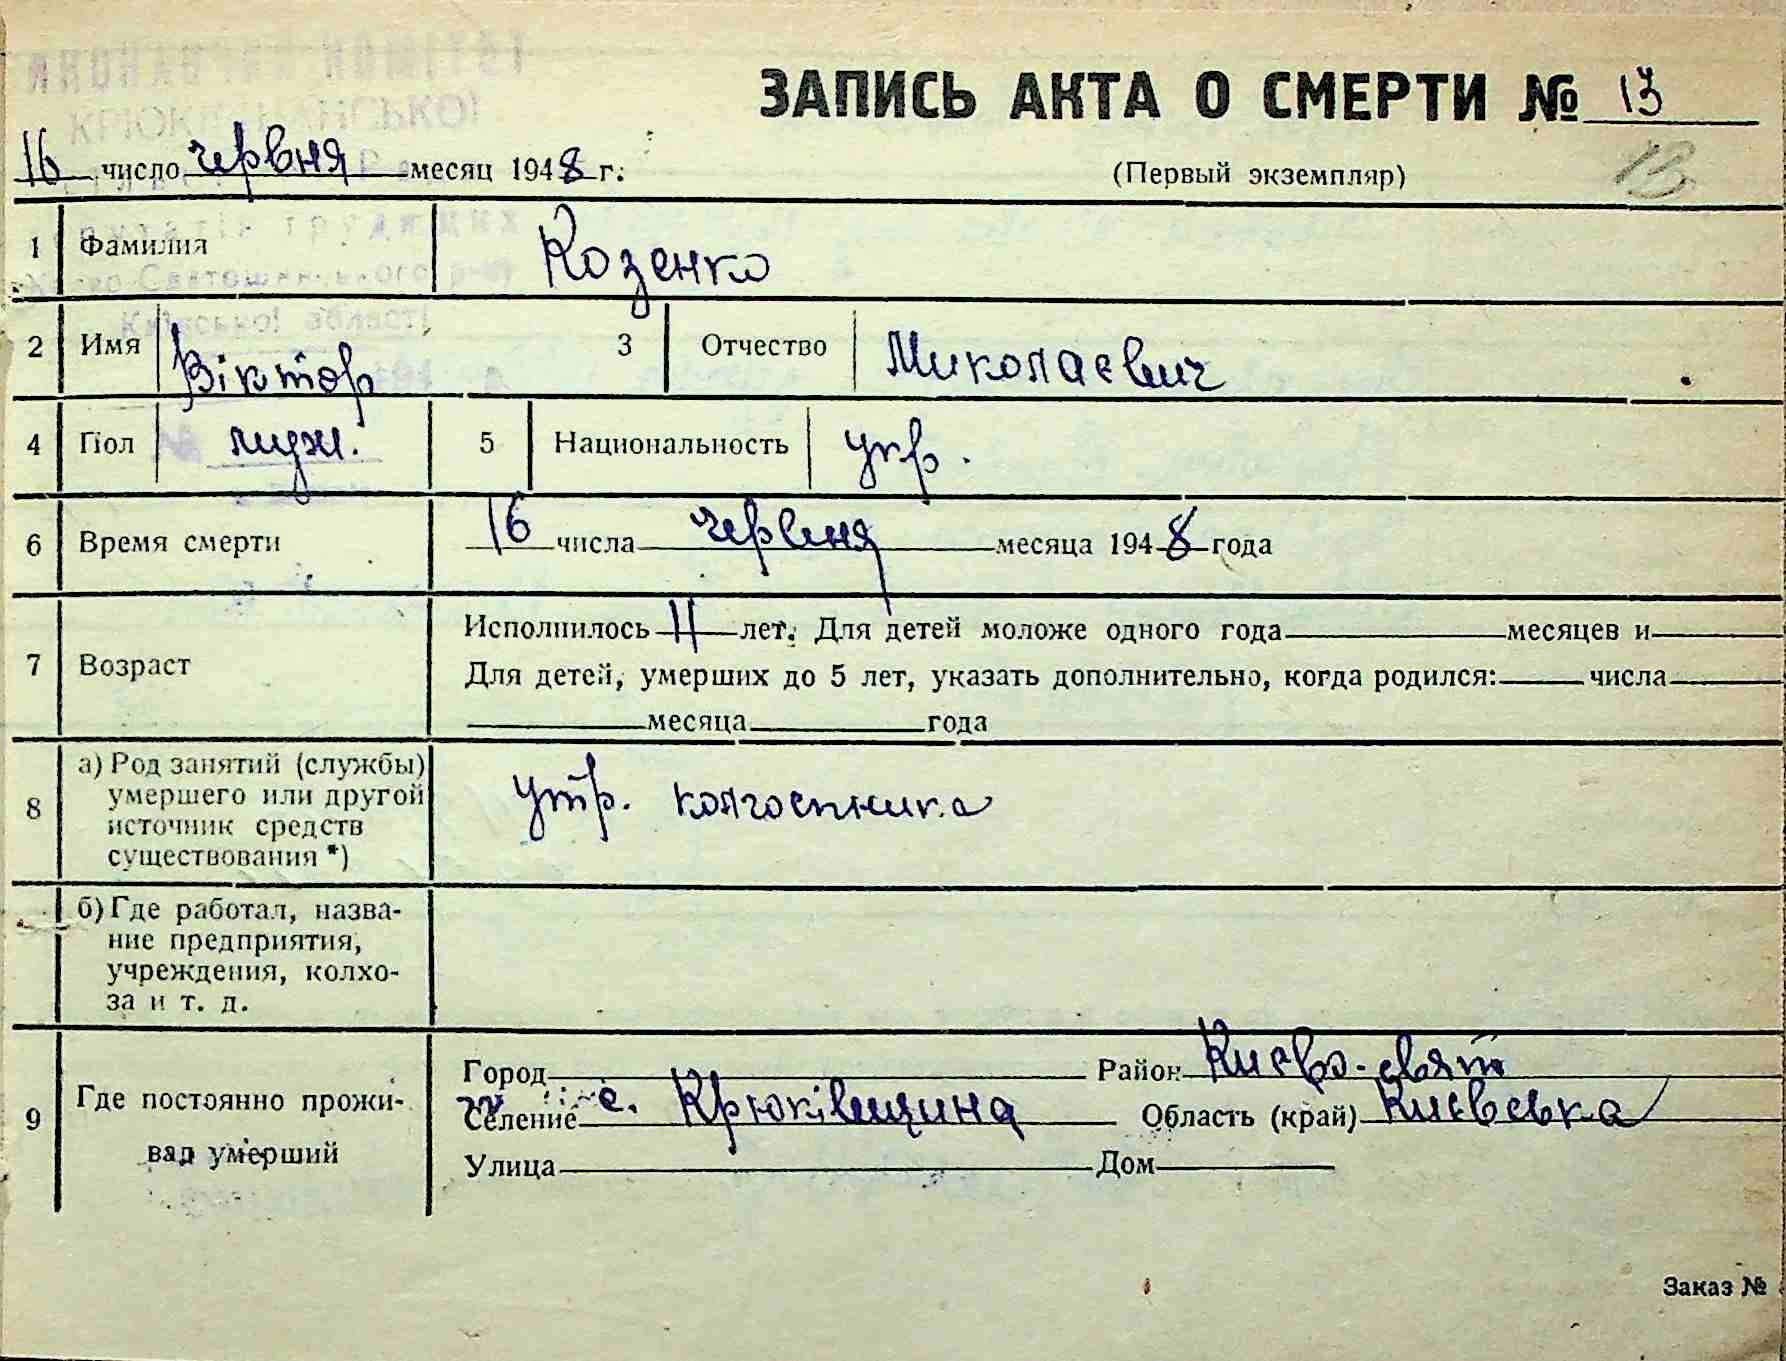 ЗАПИСЬ АКТА О СМЕРТИ № 13
16 число червня месяц 1948 г.
(Первый экземпляр)
13
1 Фамилия Козенко
2 Имя Віктор 3 Отчество Миколаєвич
4 Пол муж. 5 Национальность укр.
6 Время смерти 16 числа червня месяца 1948 года
7 Возраст
Исполнилось 11 лет. Для детей моложе одного года месяцев и
Для детей, умерших до 5 лет, указать дополнительно, когда родился: числа
месяца года
8 а) Род занятий (службы)
умершего или другой
источник средств
существования *)
утр. колгоспника
б) Где работал, назва-
ние предприятия,
учреждения, колхо-
за и т. д.
9 Где постоянно прожи-
вал умерший
Город Район Києво-Свят
Селение с. Крюківщина Область (край) Києвська
Улица Дом
Заказ №